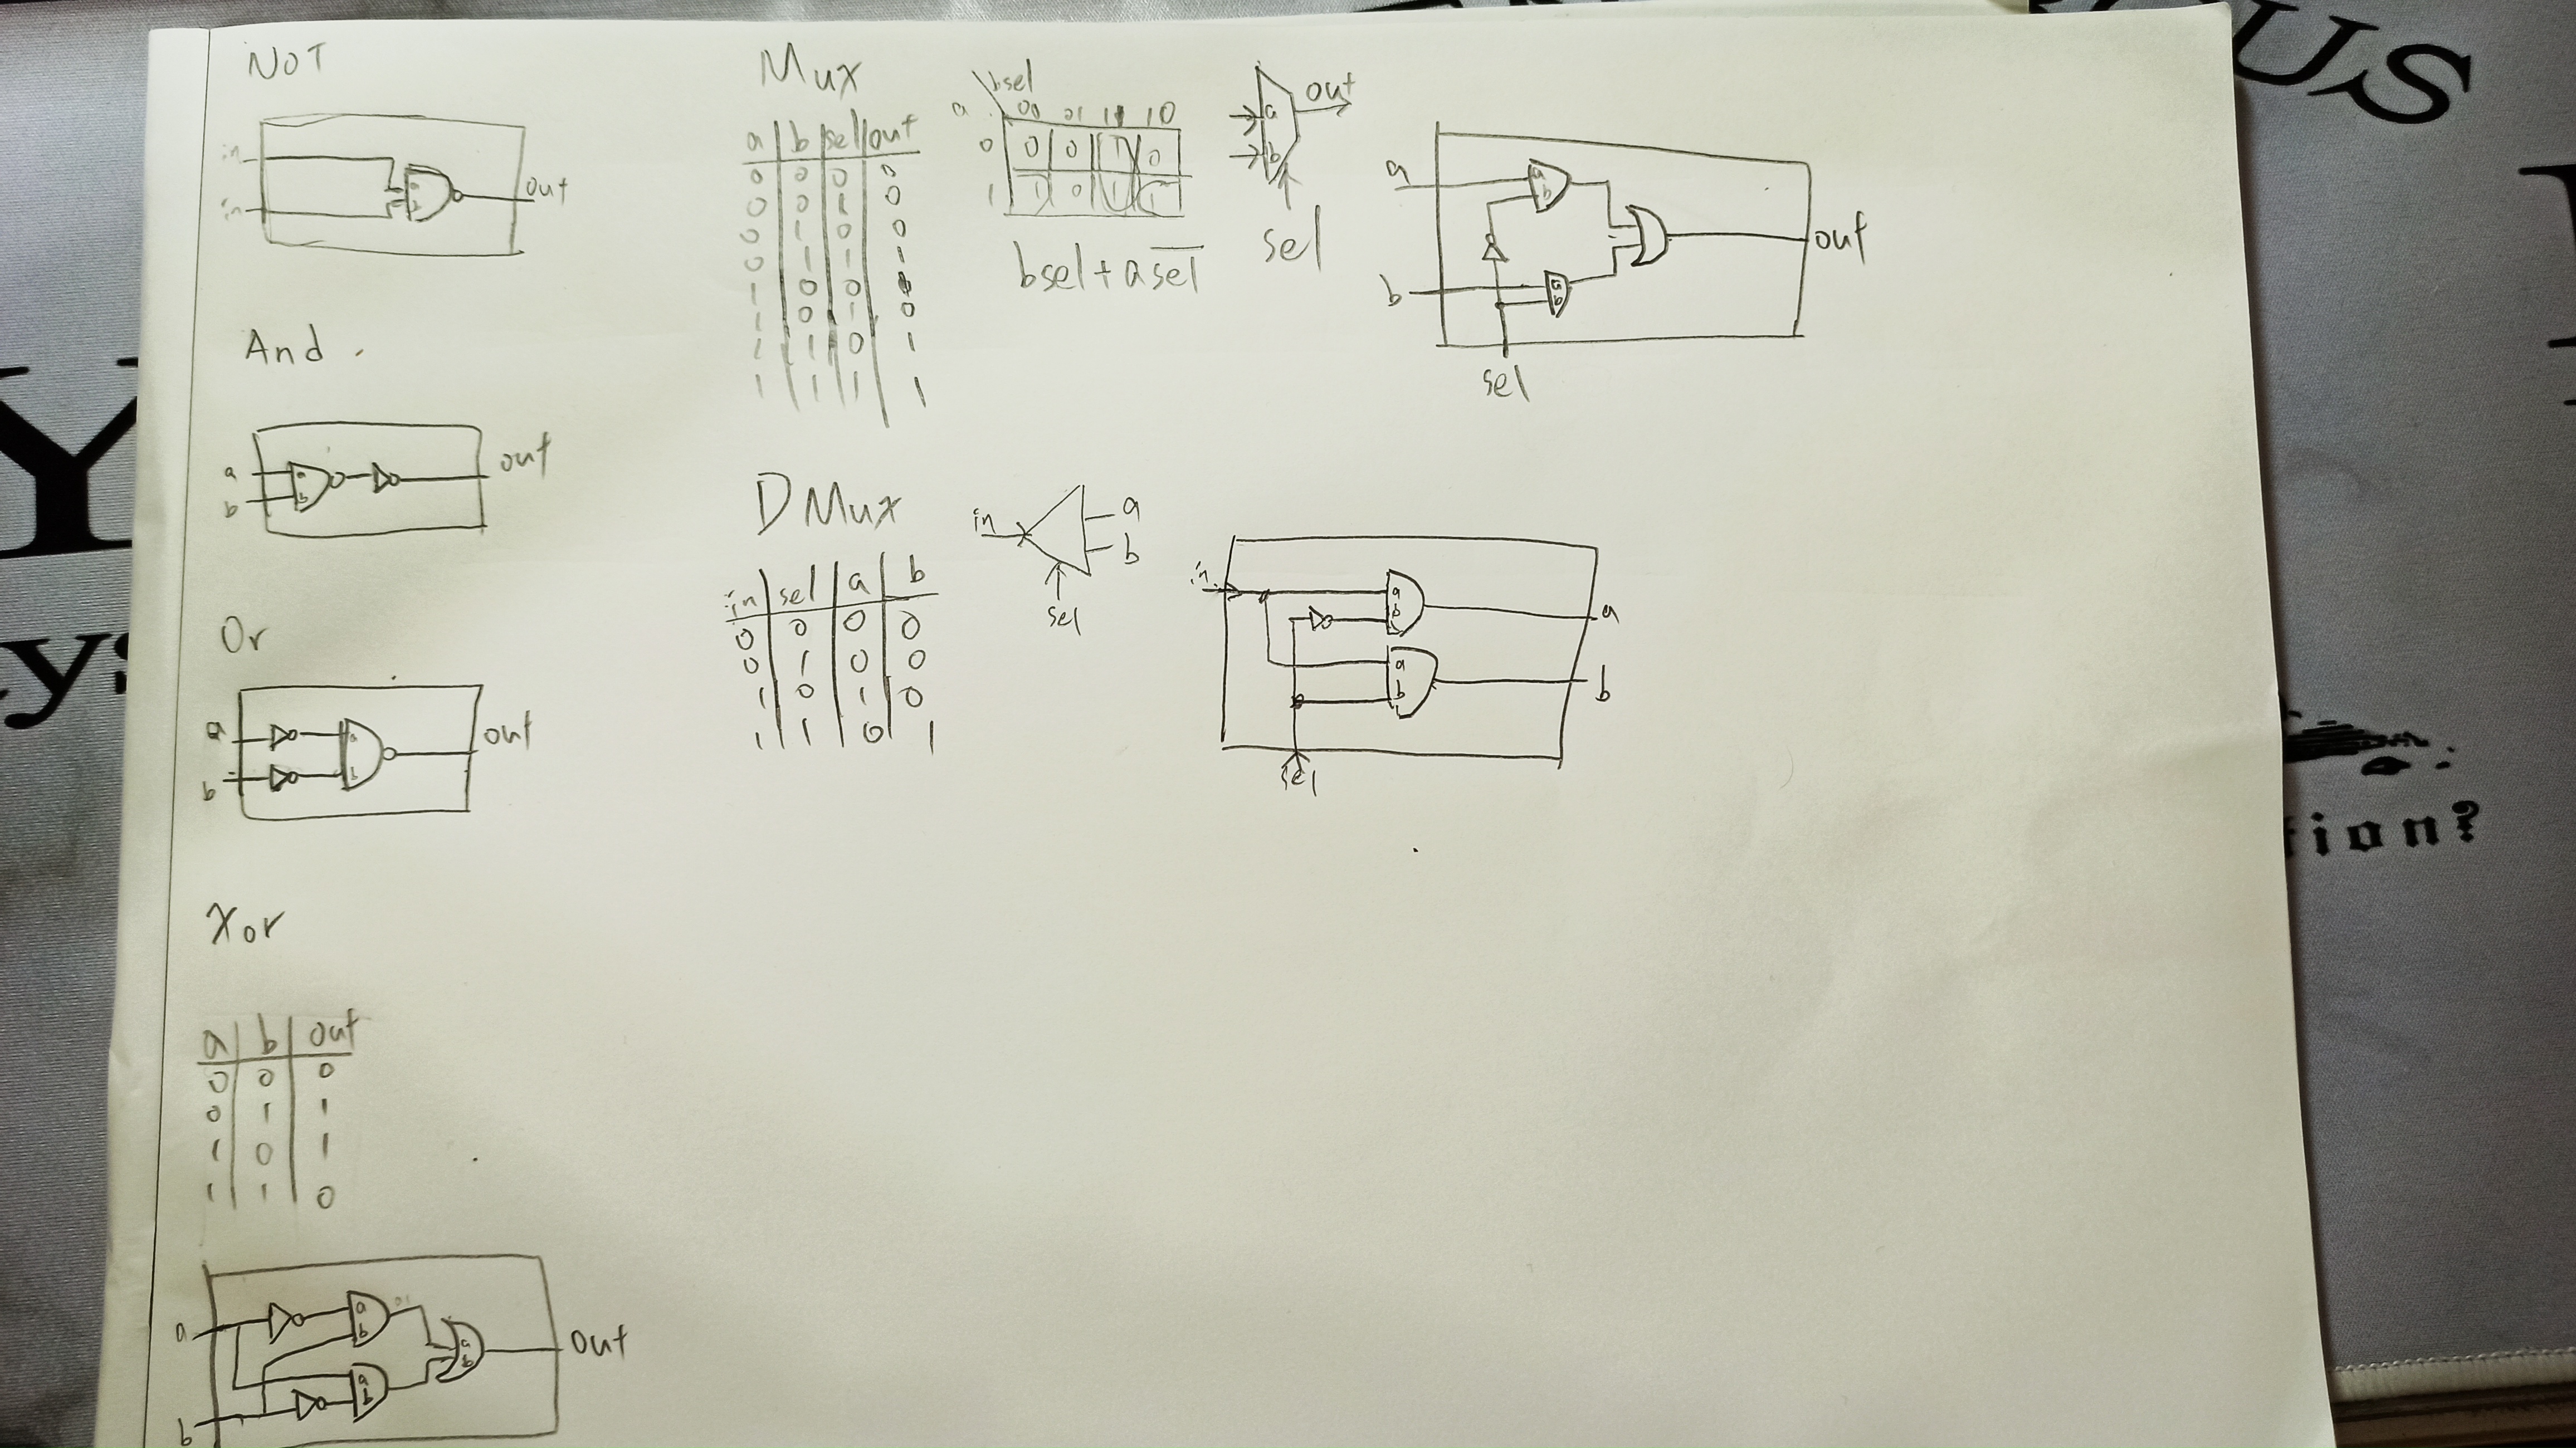 NOT
in
in
out
And
a
b
a
b
out
Or
a
b
a
b
out
Xor
a b out
0 0 0
0 1 1
1 0 1
1 1 0
a
b
a
b
a
b
a
b
out
Mux
a b sel out
0 0 0 0
0 0 1 0
0 1 0 0
0 1 1 1
1 0 0
1 0 1 0
1 1 0 1
1 1 1 1
bsel
a 00 01 11 10
0 0 0 1 0
1 1 0 1 1
bsel + a\overline{sel}
a
b
out
sel
a
b
a
b
a
b
out
sel
DMux
in sel a b
0 0 0 0
0 1 0 0
1 0 1 0
1 1 0 1
in
a
b
sel
in
a
b
a
b
a
b
sel
US
Y
ys
tion?